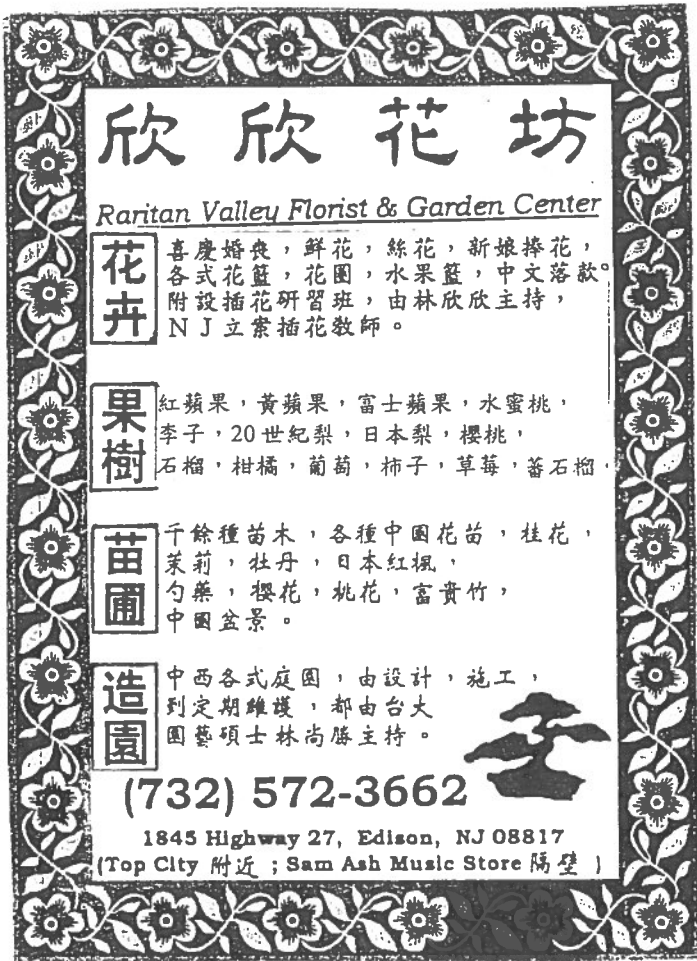 欣欣花坊
Raritan Valley Florist & Garden Center
花卉
喜慶婚喪，鮮花，絲花，新娘捧花，
各式花籃，花圈，水果籃，中文落款。
附設插花研習班，由林欣欣主持，
NJ立案插花教師。
果樹
紅蘋果，黃蘋果，富士蘋果，水蜜桃，
李子，20世紀梨，日本梨，櫻桃，
石榴，柑橘，葡萄，柿子，草莓，蕃石榴，
苗圃
千餘種苗木，各種中國花苗，桂花，
茉莉，牡丹，日本紅楓，
勺藥，櫻花，桃花，富貴竹，
中國盆景。
造園
中西各式庭園，由設計，施工，
到定期維護，都由台大
園藝碩士林尚勝主持。
(732) 572-3662
1845 Highway 27, Edison, NJ 08817
(Top City 附近；Sam Ash Music Store 隔壁)